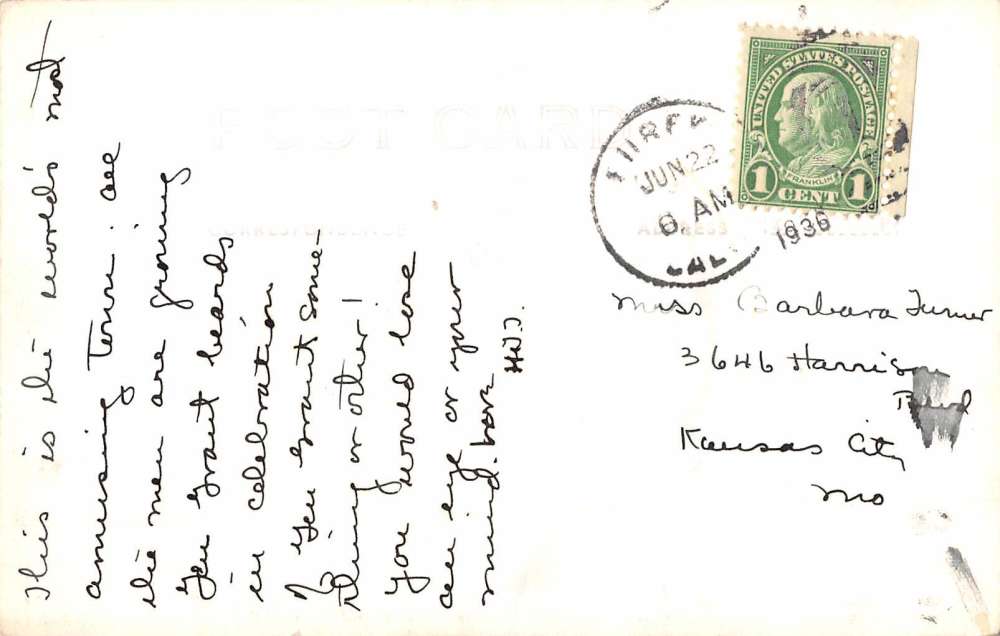 This is the world's most
amusing town. all
the men are growing
Gen Grant beards
in celebration
of Gen Grant some-
thing or other!
You would lose
an eye or your
mind. Love
HW.
POST CARD
CORRESPONDENCE
ADDRESS
JUN 22
8 AM
1936
CAL
UNITED STATES POSTAGE
FRANKLIN
1 CENT 1
Miss Barbara Turner
3646 Harrison
Blvd
Kansas City
Mo